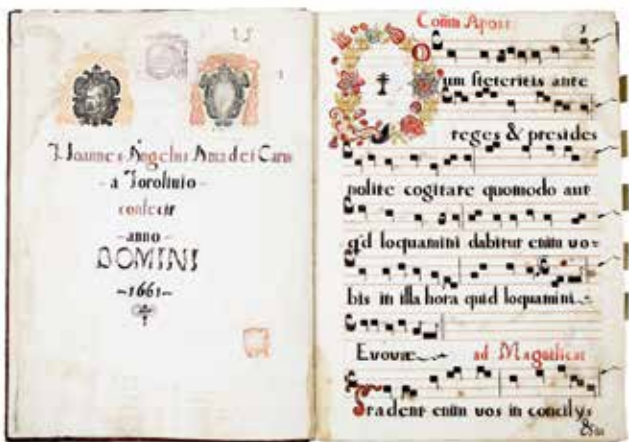 Joannes Angelus Amadei Canᵘˢ
- a Torolinio -
confecit
- anno -
DOMINI
- 1661 -
Com̃ Apost
um steteritis ante
reges & presides
nolite cogitare quomodo aut
qd loquamini dabitur enim uo=
bis in illa hora quid loquamini
Evovæ ad Magnificat
Tradent enim vos in concilijs